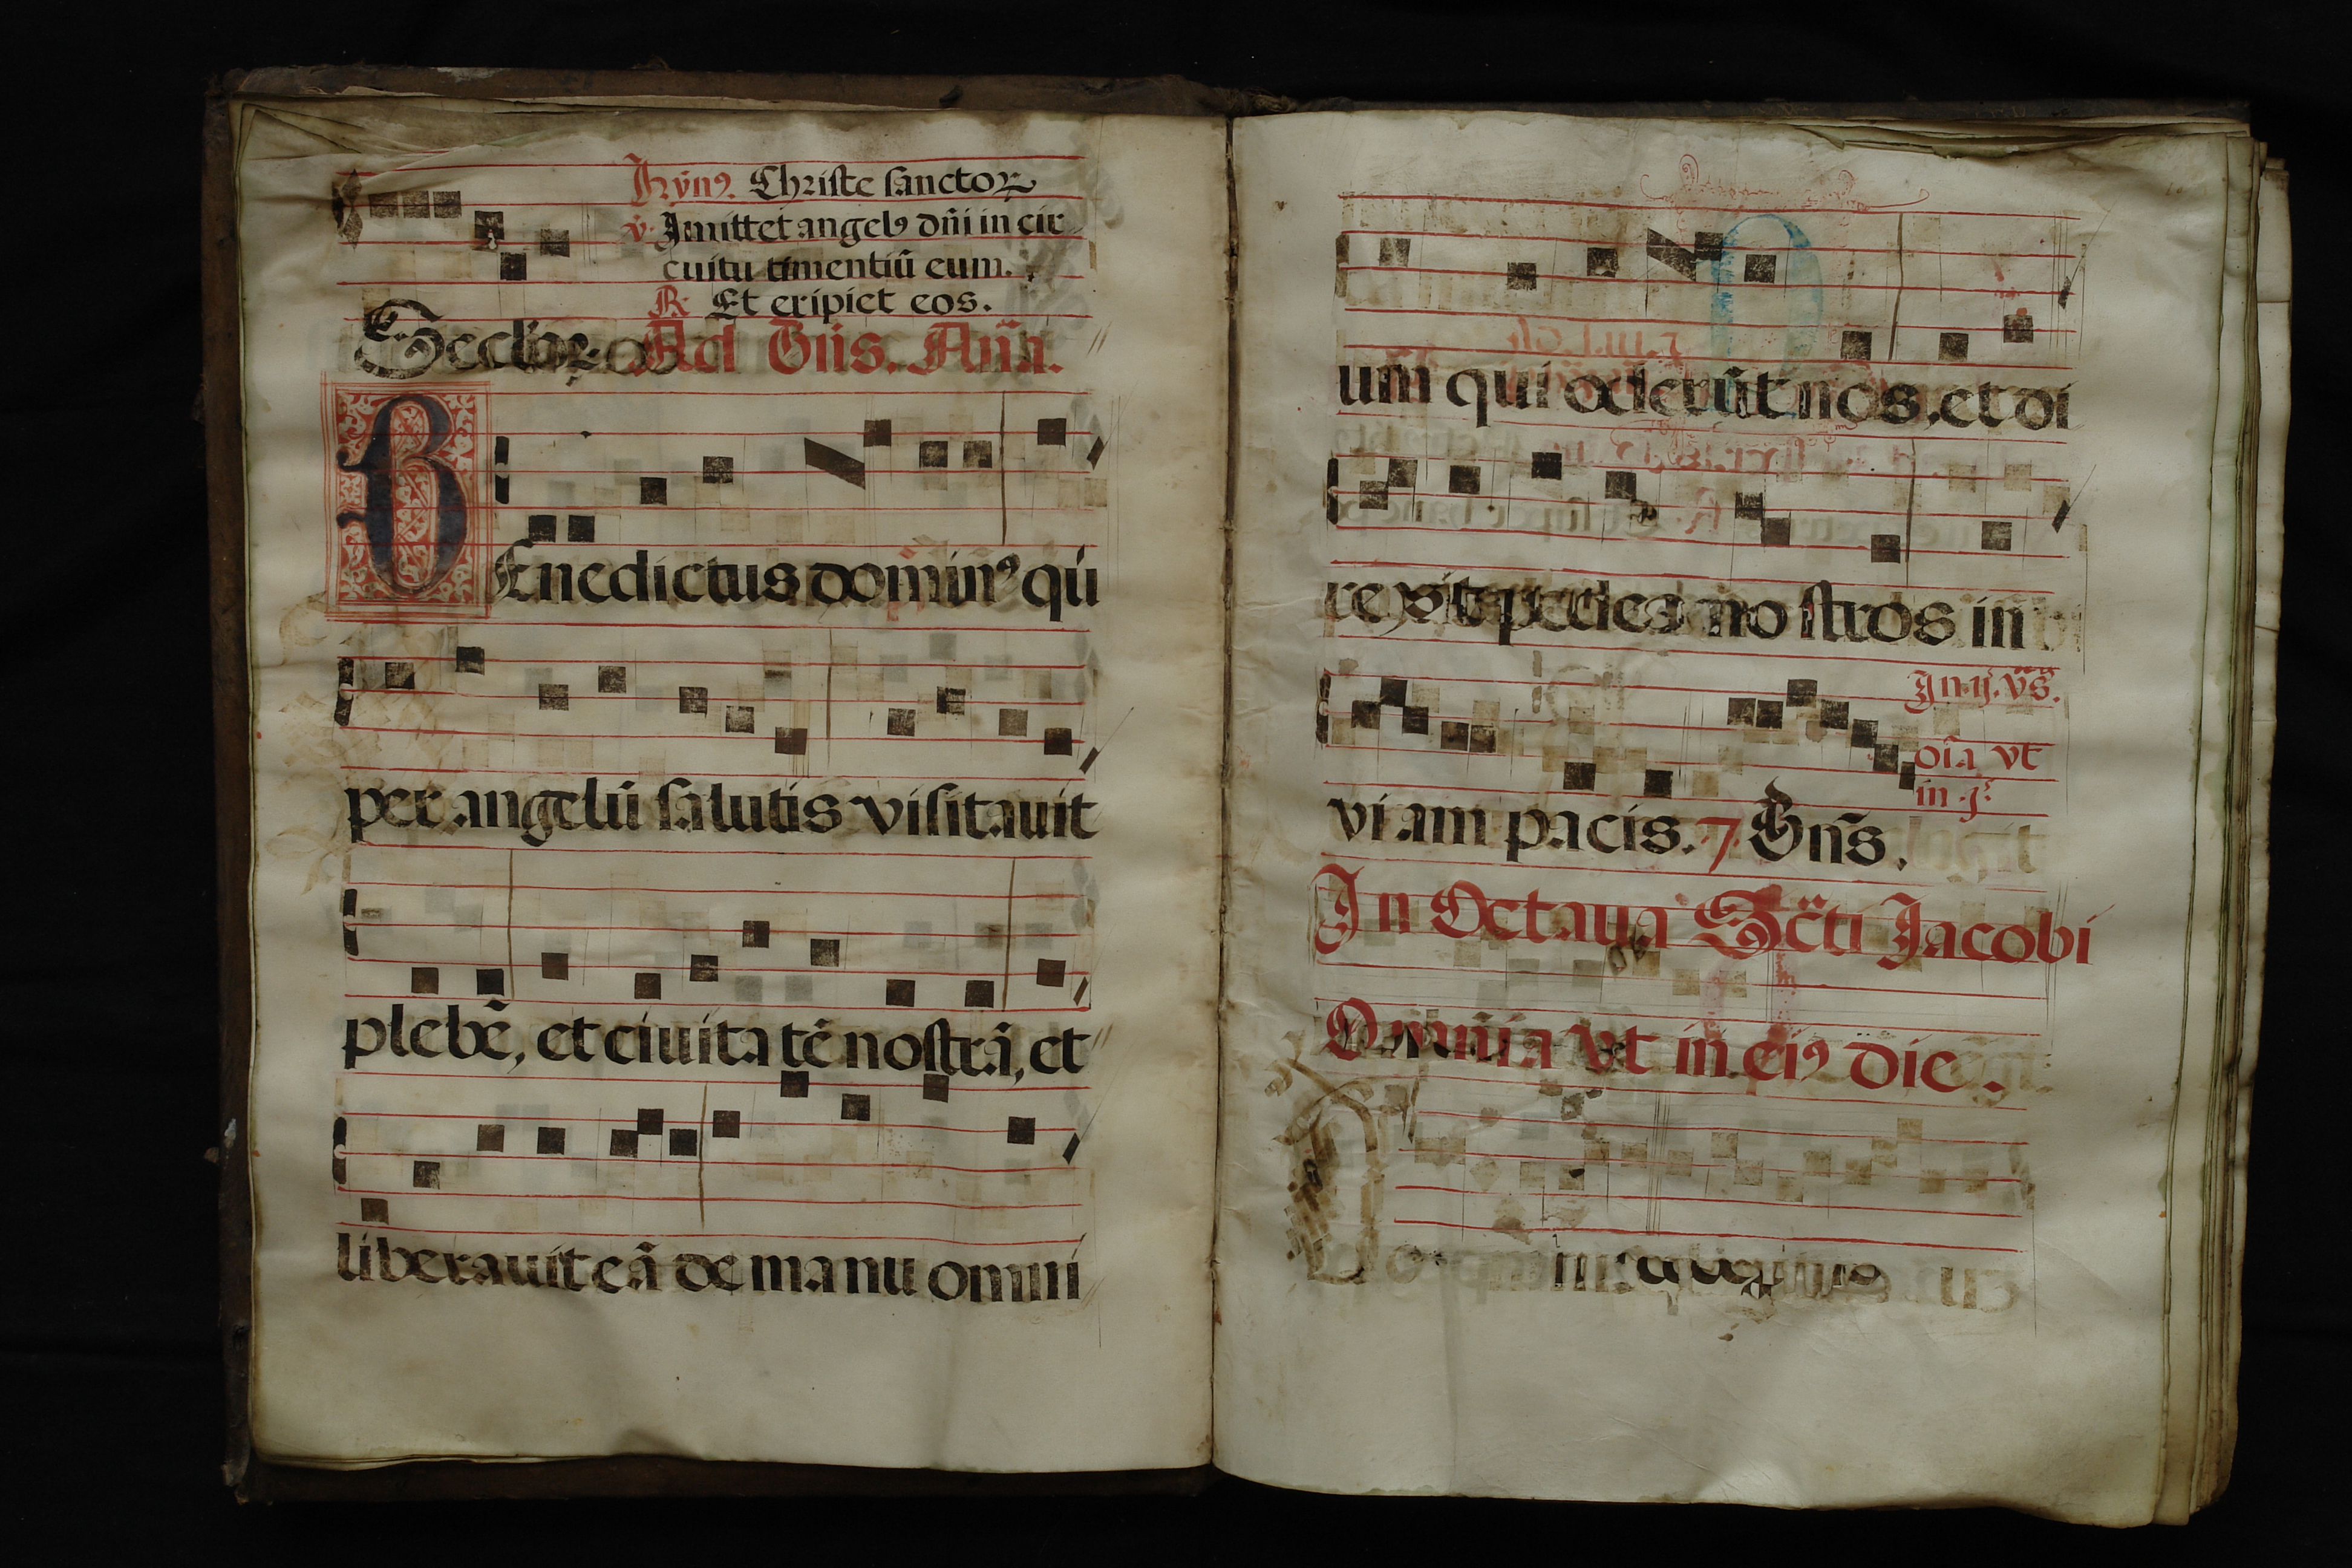 Hỹnꝰ. Christe sanctoꝝ
℣. Jmittet angelꝰ dñi in cir
cuitu timentiũ eum.
℟. Et eripiet eos.
Ad Bñs. Añã.
BEnedictus dominꝰ qui
per angelũ salutis visitauit
plebẽ, et ciuitatẽ nostrã, et
liberauit eã de manu omni
um qui oderũt nos, et di
rexit pedes nostros in
Jn .ij. v̈s̃.
oĩa vt
in .jᵃ.
viam pacis. 7 Bñs.
Jn Octaua Sc̃ti Jacobi
Omnia vt in eiꝰ die.